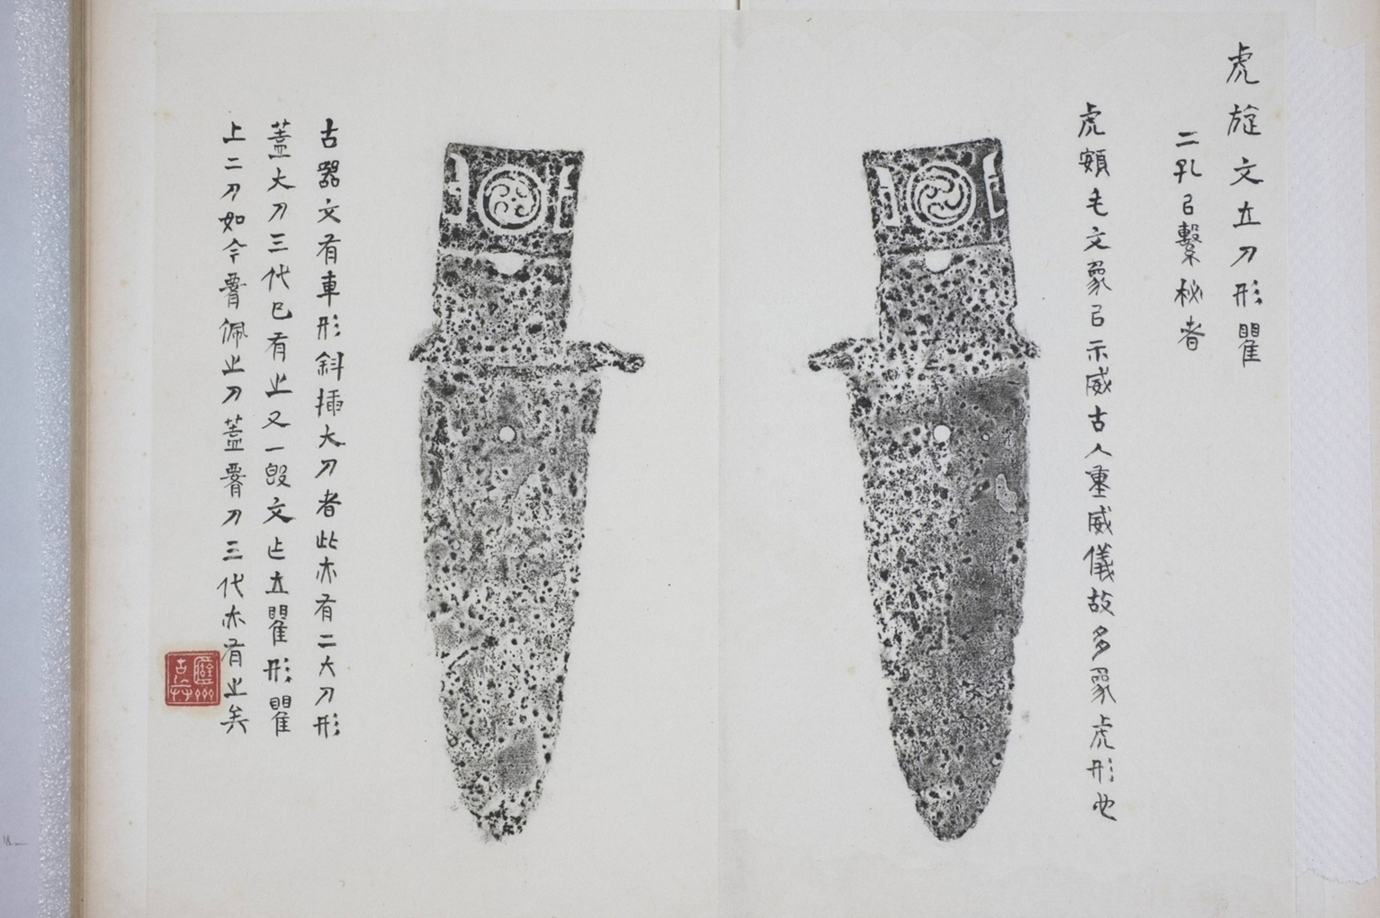 虎旋文立刀形瞿
二孔㠯繫柲者
虎頞毛文象㠯示威古人重威儀故多象虎形也
古器文有車形斜插大刀者此亦有二大刀形
蓋大刀三代已有之又一㱿文占立瞿形瞿
上二刀如今膂佩之刀蓋膂刀三代亦有之矣